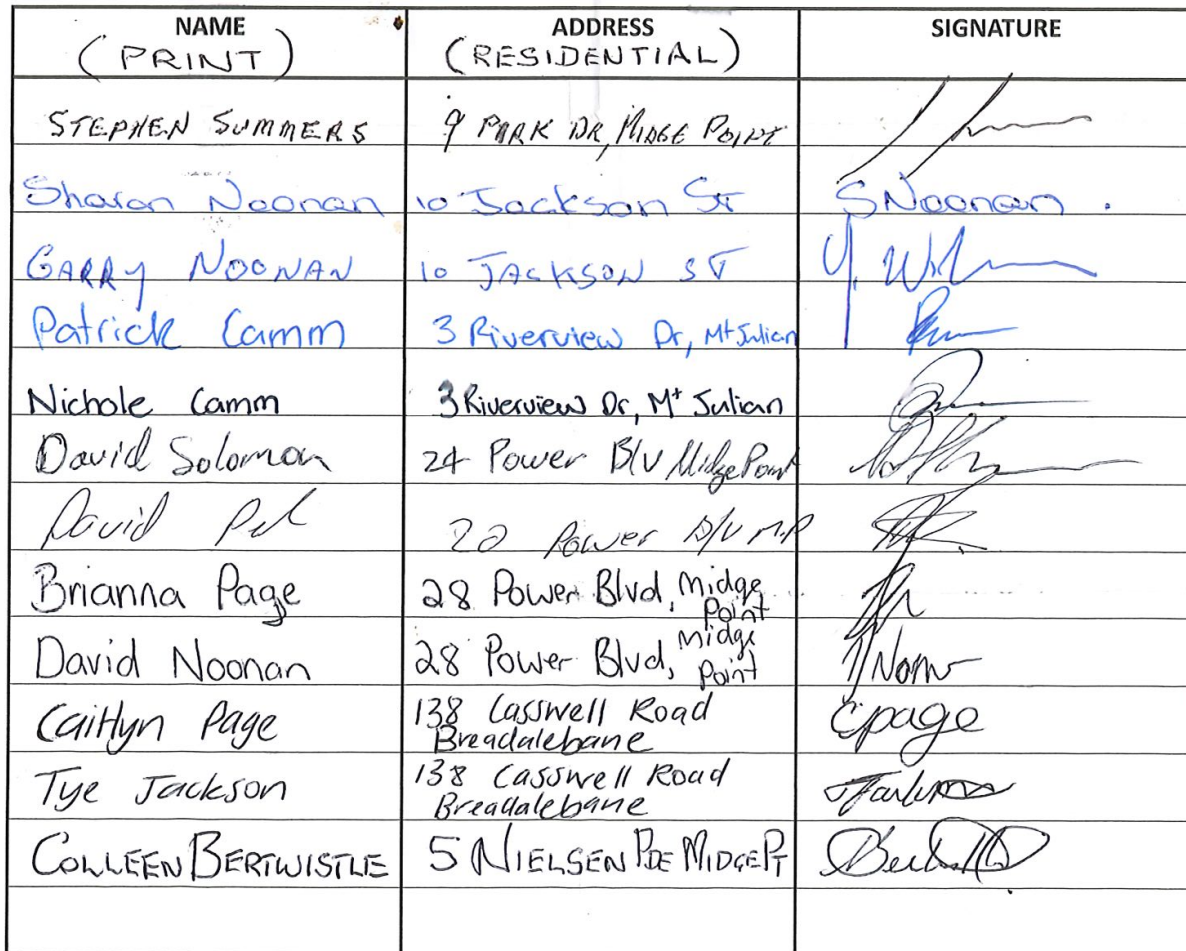 NAME ADDRESS SIGNATURE
(PRINT) (RESIDENTIAL)
STEPHEN SUMMERS 9 PARK DR, MIDGE POINT
Sharon Noonan 10 Jackson St SNoonan.
GARRY NOONAN 10 JACKSON ST
Patrick Camm 3 Riverview Dr, Mt Julian
Nichole Camm 3 Riverview Dr, Mt Julian
David Solomon 24 Power Blv Midge Point
David 20 Power Blv M.P
Brianna Page 28 Power Blvd, Midge
Point
David Noonan 28 Power Blvd, Midge
Point
Caitlyn Page 138 Casswell Road cpage
Breadalebane
Tye Jackson 138 Casswell Road
Breadalebane
COLLEEN BERTWISTLE 5 NIELSEN PDE MIDGE PT